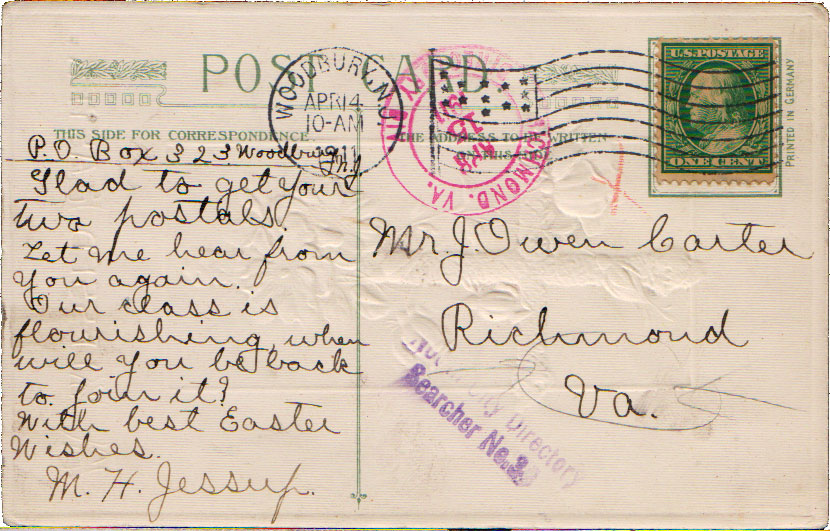 POST CARD
THIS SIDE FOR CORRESPONDENCE
THE ADDRESS TO BE WRITTEN
ON THIS SIDE
WOODBURY, N.J.
APR 14
10-AM
1911
RICHMOND, VA.
U.S. POSTAGE
ONE CENT
PRINTED IN GERMANY
P.O. Box 323 Woodbury
N.J.
Glad to get your
two postals.
Let me hear from
you again.
Our class is
flourishing, when
will you be back
to join it?
With best Easter
Wishes.
M. H. Jessup.
Mr. J. Owen Carter
Richmond
Va.
City Directory
Searcher No.